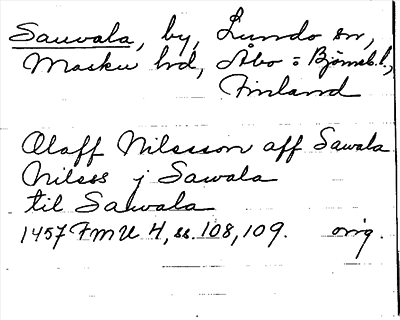 Sauvala, by, Lundo sn,
Masku hd, Åbo = Björneb. l.,
Finland
Olaff Nilsson aff Sawala
Nilsss j Sawala
til Sawala
1457 FMU 4, ss. 108, 109. orig.